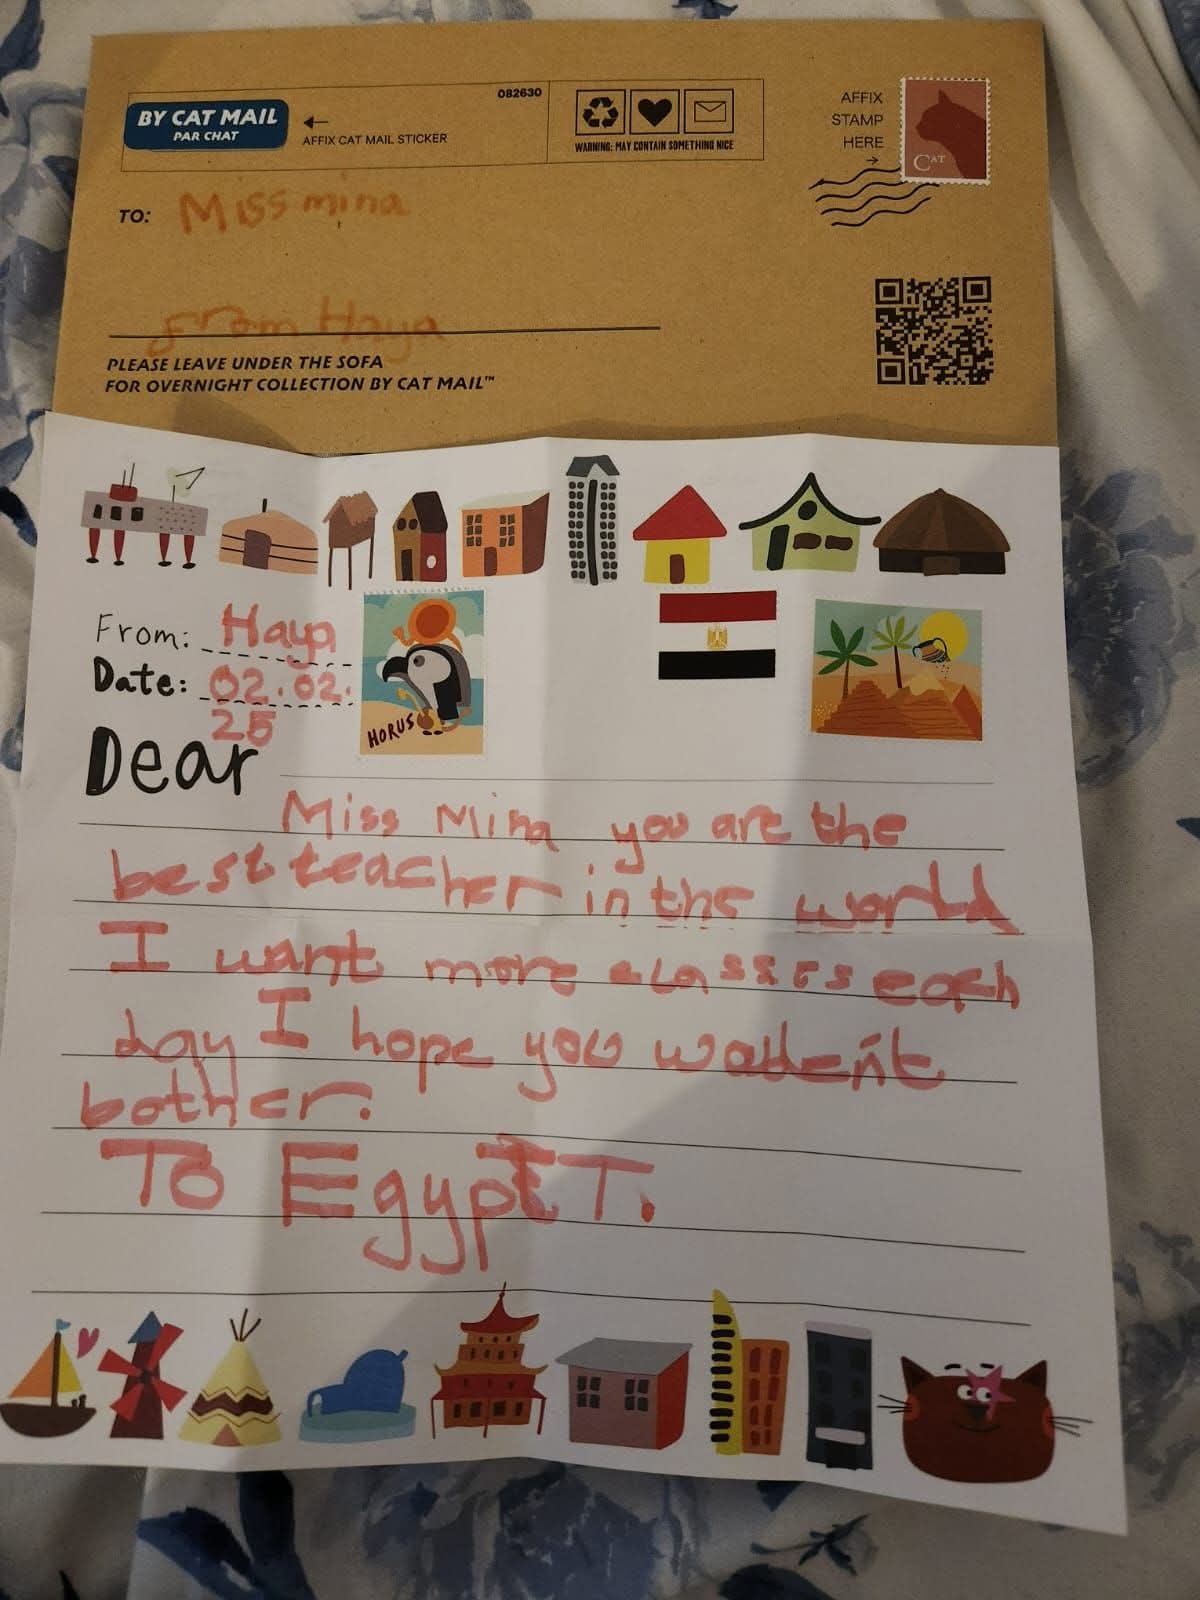 BY CAT MAIL
PAR CHAT
AFFIX CAT MAIL STICKER
082630
WARNING: MAY CONTAIN SOMETHING NICE
AFFIX
STAMP
HERE
CAT
TO: Miss mina
From Haya
PLEASE LEAVE UNDER THE SOFA
FOR OVERNIGHT COLLECTION BY CAT MAIL™
From: Haya
Date: 02.02.
25
HORUS
Dear
Miss Mina you are the
best teacher in the world
I want more classes each
day I hope you wouden't
bother.
TO EgyptT.